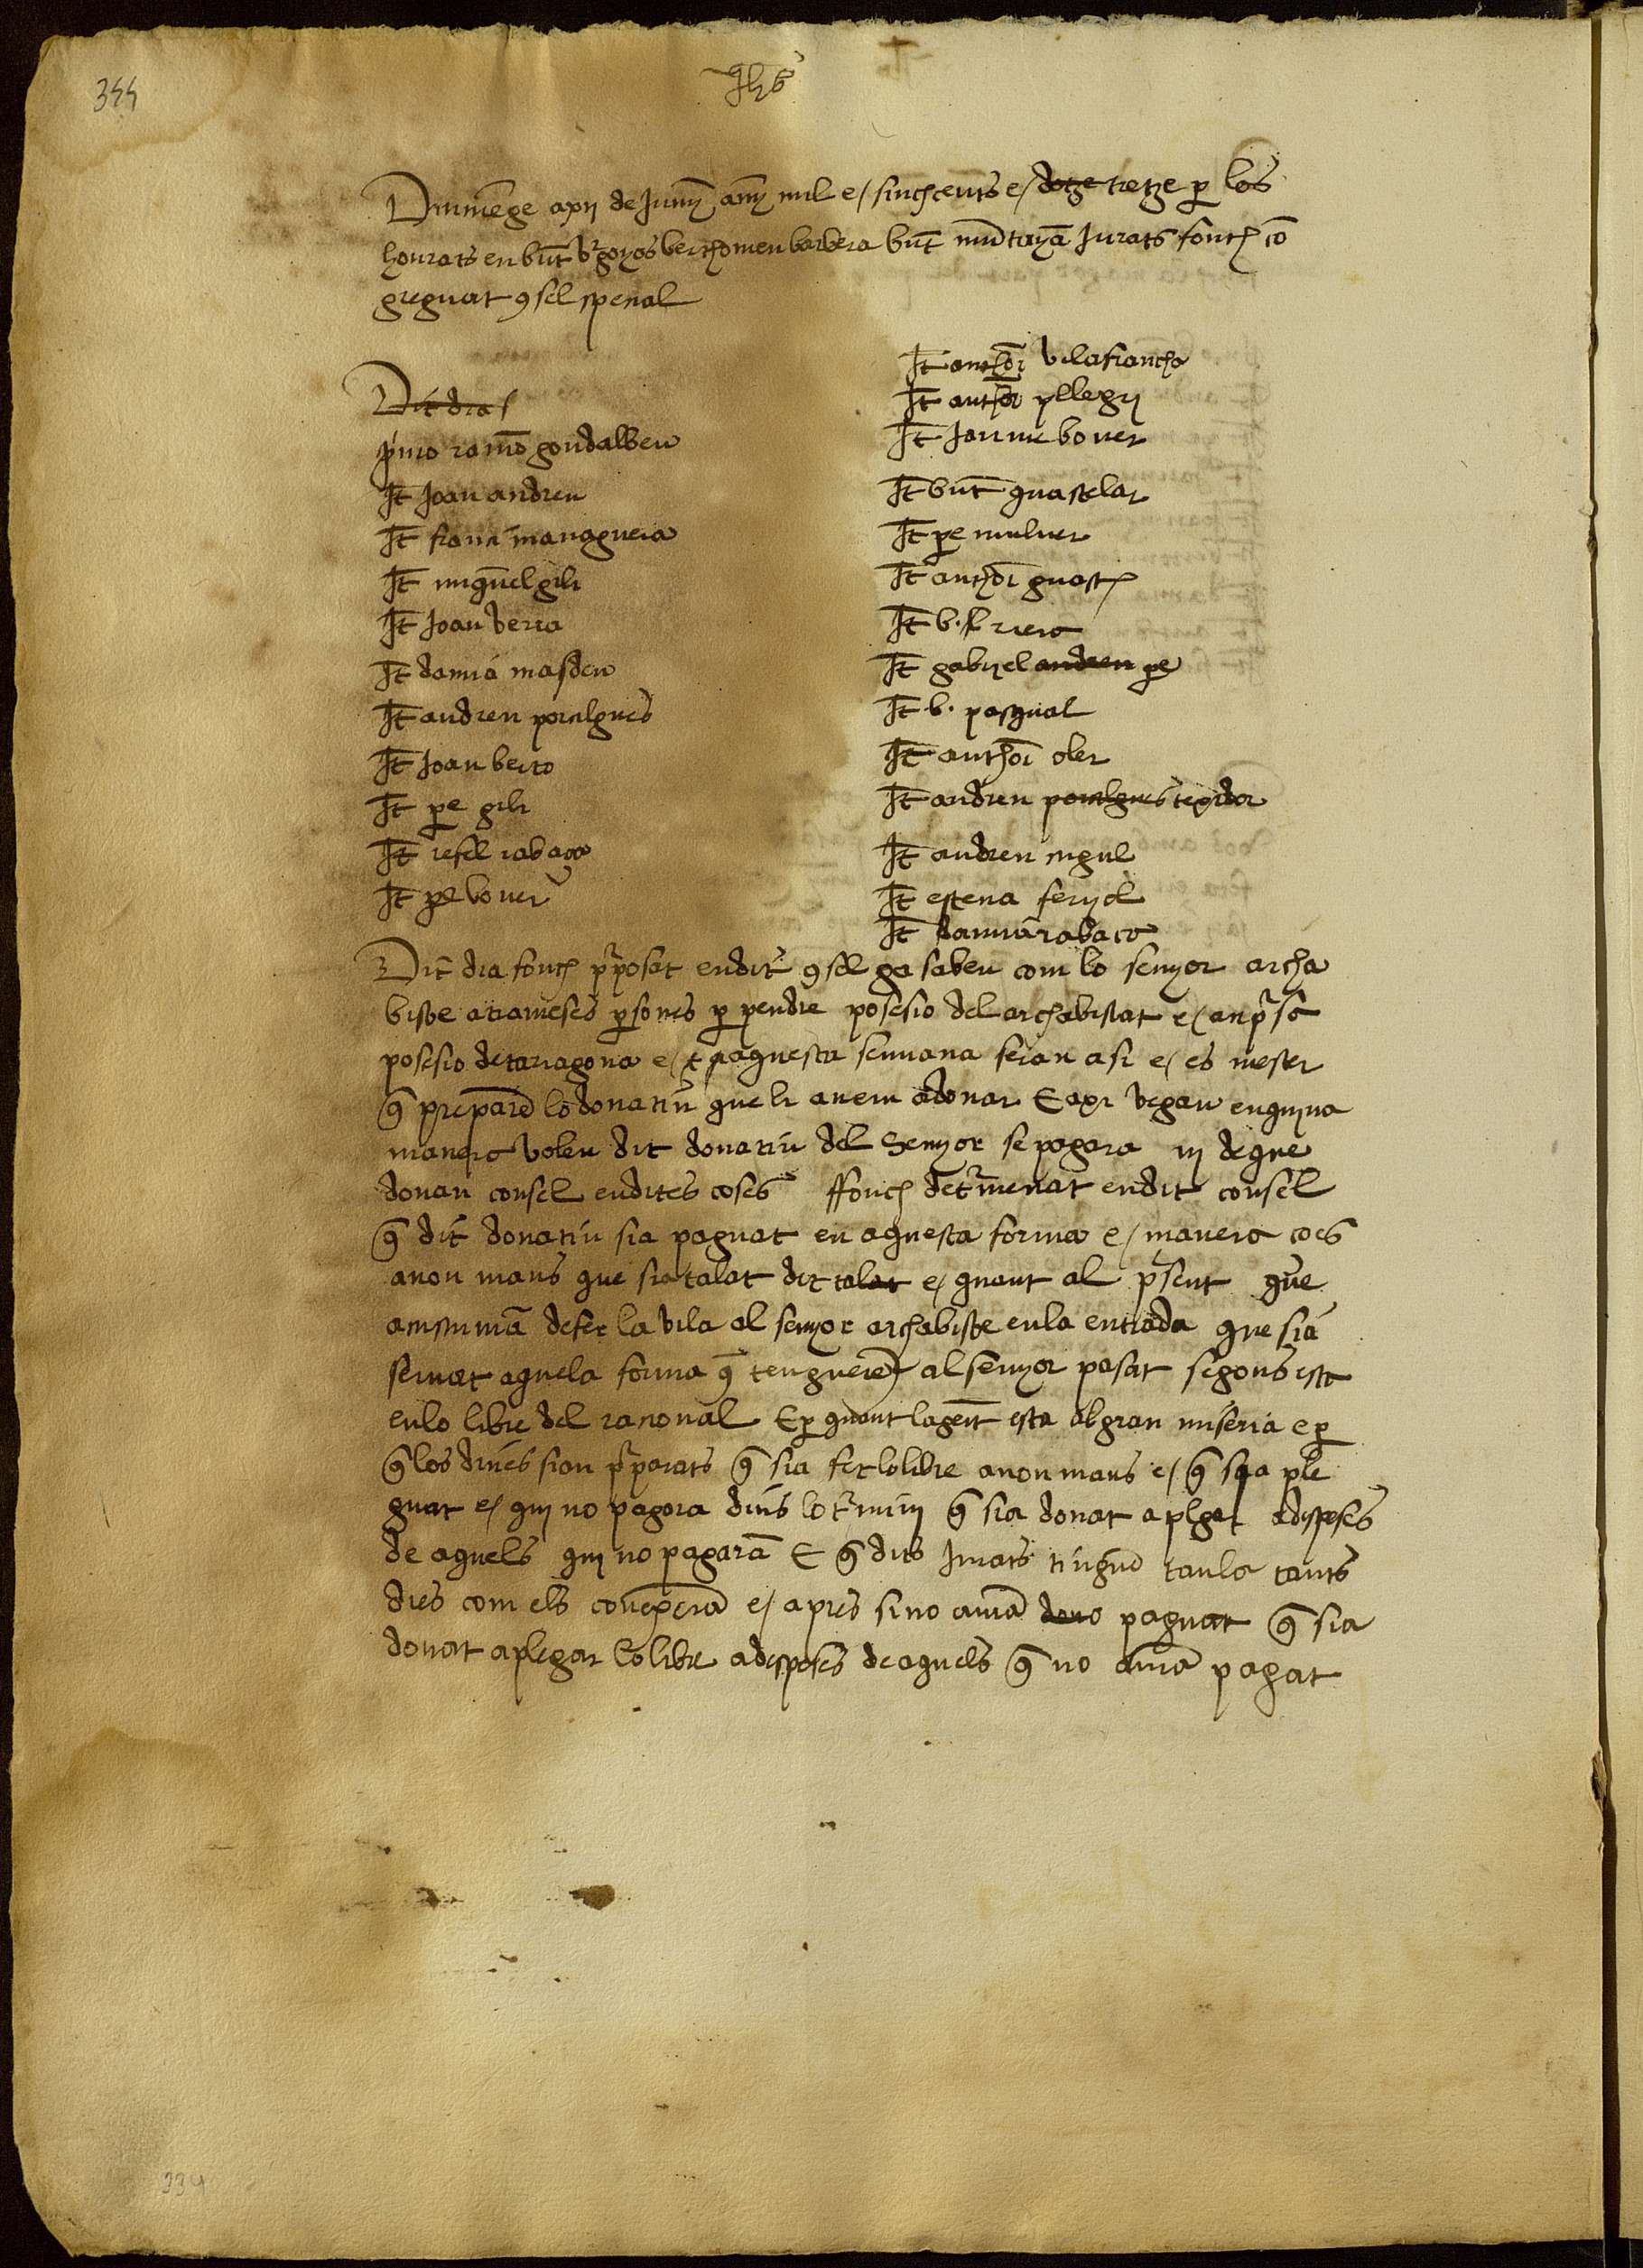 344
Jhs
Diumēge a xij de Juny any mil e sinchcents e dotze tretze per los
honrats en bnt vrgoyos berthomeu barbera bnt mūtayā Jurats fonch cō
greguat consel spenal
Dit dia
primo ramō gondalbeu
It Joan andreu
It franci managuera
It miquel gili
It Joan verra
It damia masdeu
It andreu portugues
It Joan berto
It pere gili
It refel rabaça
It pere bover
It anthoni vilafrancha
It anthoni pllegrj
It Jaume bover
It bnt guastelar
It pere muluer
It anthoni guasch
It b. f. riera
It gabriel andreu pere
It b. pasqual
It anthoni oler
It andreu portugues texidor
It andreu cugul
It esteva feriol
It damia rabaça
Dit dia fonch pposat en dit consel ga sabeu com lo senyor archa
bisbe a trameses persones per pendre posesio del archabisbat e an presa
posesio de tarragona e aquesta semana seran asi e es mester
que preparē lo donatiu que li avem a donar E axi vegau en quina
manera voleu dit donatiu del Senyor se pagara ni de que
donau consel en dites coses ffonch determenat en dit consel
que dit donatiu sia paguat en aquesta forma e manera ço es
a non mans que sia talat dit talat e quant al present que
acustumā de fer la vila al senyor archabisbe en la entrada que sia
servat aquela forma que tenguerē al senyor pasat segons esta
en lo libre del racional E per quant la gent esta ab gran miseria e per
que los dines sian preparats que sia fet lo libre a non mans e que sia ple
guat e qui no pagara dins lo termini que sia donat a plegar a despeses
de aquels qui no pagarā E que dits Jurats tingue taula tants
dies com els conexerā e apres si no aurā dono paguat que sia
donat a plegar lo libre a despeses de aquels que no aurā pagat
334